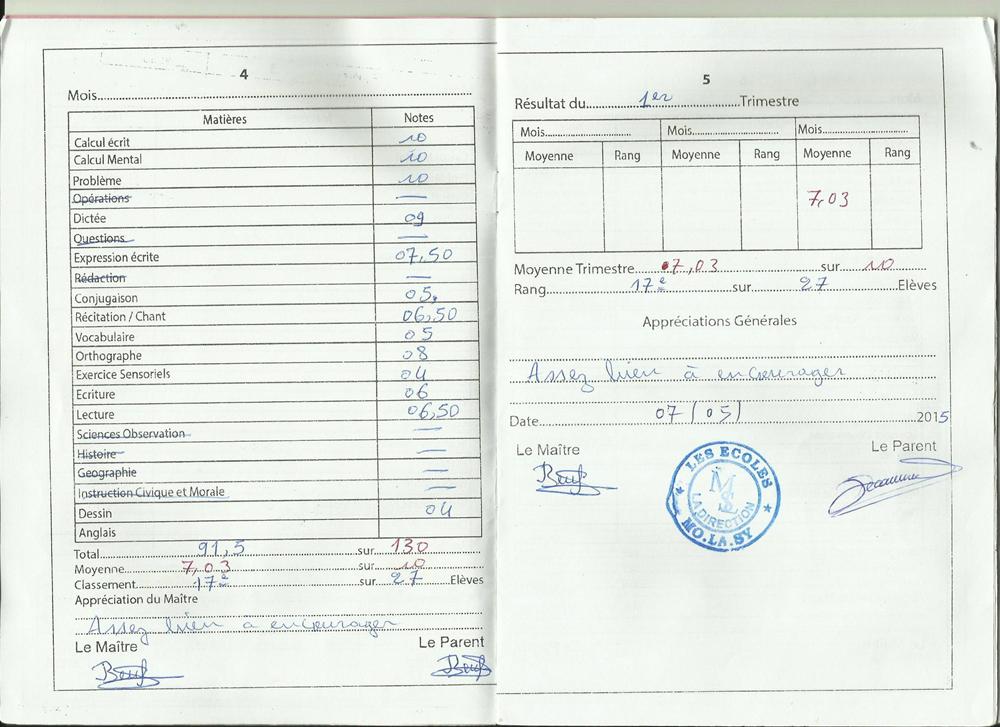 4
Mois
Matières Notes
Calcul écrit 10
Calcul Mental 10
Problème 10
Opérations —
Dictée 09
Questions —
Expression écrite 07,50
Rédaction —
Conjugaison 05,
Récitation / Chant 06,50
Vocabulaire 05
Orthographe 08
Exercice Sensoriels 04
Ecriture 06
Lecture 06,50
Sciences Observation —
Histoire —
Geographie —
Instruction Civique et Morale —
Dessin 04
Anglais
Total 91,5 sur 130
Moyenne 7,03 sur 10
Classement 17e sur 27 Elèves
Appréciation du Maître
Assez bien à encourager
Le Maître Le Parent
5
Résultat du 1er Trimestre
Mois Mois Mois
Moyenne Rang Moyenne Rang Moyenne Rang
7,03
Moyenne Trimestre 07,03 sur 10
Rang 17e sur 27 Elèves
Appréciations Générales
Assez bien à encourager
Date 07/05/ 2015
Le Maître Le Parent
LES ECOLES
MSL
LA DIRECTION
MO.LA.SY